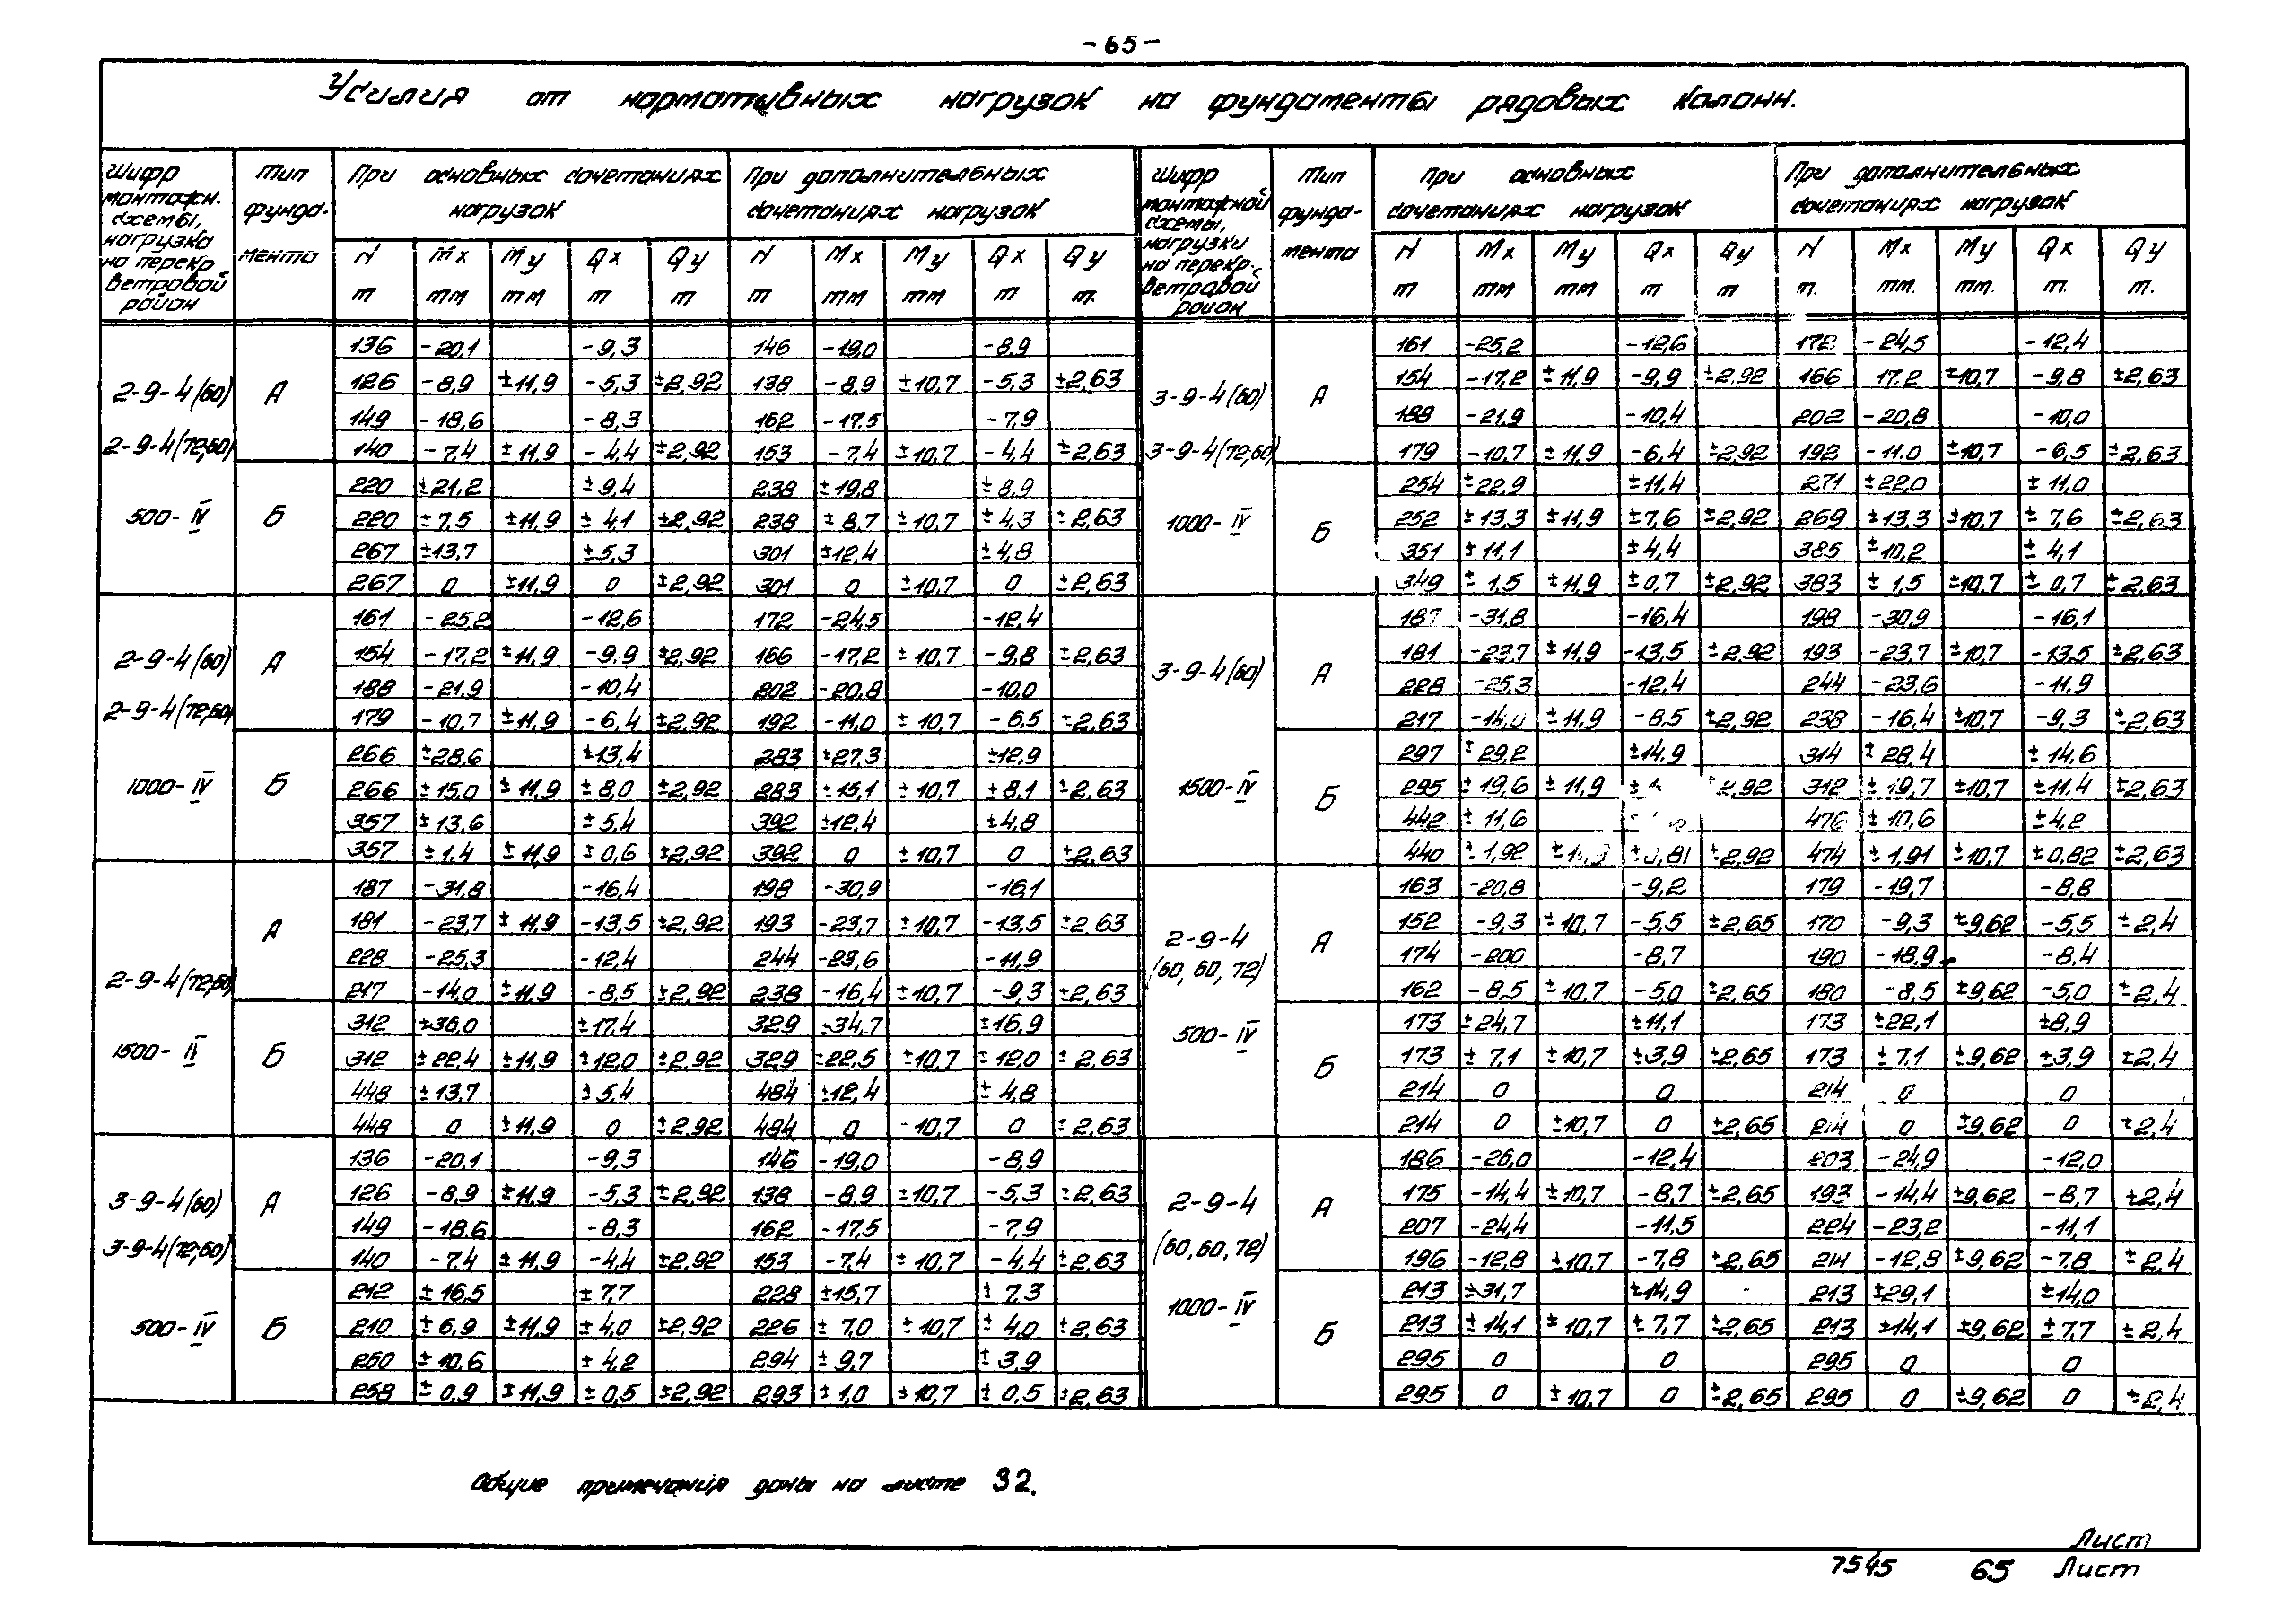 - 65 -
Усилия от нормативных нагрузок на фундаменты рядовых колонн.
Шифр монтажн. схемы, нагрузка на перекр ветровой район | Тип фундамента | При основных сочетаниях нагрузок | При дополнительных сочетаниях нагрузок | Шифр монтажной схемы, нагрузки на перекр. ветровой район | Тип фундамента | При основных сочетаниях нагрузок | При дополнительных сочетаниях нагрузок
N Mx My Qx Qy N Mx My Qx Qy N Mx My Qx Qy N Mx My Qx Qy
т тм тм т т т тм тм т т т тм тм т т т. тм. тм. т. т.
2-9-4(60)
2-9-4(72;60)
500-IV
А
136 -20,1 -9,3 146 -19,0 -8,9
126 -8,9 ±11,9 -5,3 ±2,92 138 -8,9 ±10,7 -5,3 ±2,63
149 -18,6 -8,3 162 -17,5 -7,9
140 -7,4 ±11,9 -4,4 ±2,92 153 -7,4 ±10,7 -4,4 ±2,63
Б
220 ±21,2 ±9,4 238 ±19,8 ±8,9
220 ±7,5 ±11,9 ±4,1 ±2,92 238 ±8,7 ±10,7 ±4,3 ±2,63
267 ±13,7 ±5,3 301 ±12,4 ±4,8
267 0 ±11,9 0 ±2,92 301 0 ±10,7 0 ±2,63
2-9-4(60)
2-9-4(72;60)
1000-IV
А
161 -25,2 -12,6 172 -24,5 -12,4
154 -17,2 ±11,9 -9,9 ±2,92 166 -17,2 ±10,7 -9,8 ±2,63
188 -21,9 -10,4 202 -20,8 -10,0
179 -10,7 ±11,9 -6,4 ±2,92 192 -11,0 ±10,7 -6,5 ±2,63
Б
266 ±28,6 ±13,4 283 ±27,3 ±12,9
266 ±15,0 ±11,9 ±8,0 ±2,92 283 ±15,1 ±10,7 ±8,1 ±2,63
357 ±13,6 ±5,4 392 ±12,4 ±4,8
357 ±1,4 ±11,9 ±0,6 ±2,92 392 0 ±10,7 0 ±2,63
2-9-4(72;60)
1500-IV
А
187 -31,8 -16,4 198 -30,9 -16,1
181 -23,7 ±11,9 -13,5 ±2,92 193 -23,7 ±10,7 -13,5 ±2,63
228 -25,3 -12,4 244 -23,6 -11,9
217 -14,0 ±11,9 -8,5 ±2,92 238 -16,4 ±10,7 -9,3 ±2,63
Б
312 ±36,0 ±17,4 329 ±34,7 ±16,9
312 ±22,4 ±11,9 ±12,0 ±2,92 329 ±22,5 ±10,7 ±12,0 ±2,63
448 ±13,7 ±5,4 484 ±12,4 ±4,8
448 0 ±11,9 0 ±2,92 484 0 -10,7 0 ±2,63
3-9-4(60)
3-9-4(72;60)
500-IV
А
136 -20,1 -9,3 146 -19,0 -8,9
126 -8,9 ±11,9 -5,3 ±2,92 138 -8,9 ±10,7 -5,3 ±2,63
149 -18,6 -8,3 162 -17,5 -7,9
140 -7,4 ±11,9 -4,4 ±2,92 153 -7,4 ±10,7 -4,4 ±2,63
Б
212 ±16,5 ±7,7 228 ±15,7 ±7,3
210 ±6,9 ±11,9 ±4,0 ±2,92 226 ±7,0 ±10,7 ±4,0 ±2,63
260 ±10,6 ±4,2 294 ±9,7 ±3,9
258 ±0,9 ±11,9 ±0,5 ±2,92 293 ±1,0 ±10,7 ±0,5 ±2,63
3-9-4(60)
3-9-4(72;60)
1000-IV
А
161 -25,2 -12,6 172 -24,5 -12,4
154 -17,2 ±11,9 -9,9 ±2,92 166 17,2 ±10,7 -9,8 ±2,63
188 -21,9 -10,4 202 -20,8 -10,0
179 -10,7 ±11,9 -6,4 ±2,92 192 -11,0 ±10,7 -6,5 ±2,63
Б
254 ±22,9 ±11,4 271 ±22,0 ±11,0
252 ±13,3 ±11,9 ±7,6 ±2,92 269 ±13,3 ±10,7 ±7,6 ±2,63
351 ±11,1 ±4,4 385 ±10,2 ±4,1
349 ±1,5 ±11,9 ±0,7 ±2,92 383 ±1,5 ±10,7 ±0,7 ±2,63
3-9-4(60)
1500-IV
А
187 -31,8 -16,4 198 -30,9 -16,1
181 -23,7 ±11,9 -13,5 ±2,92 193 -23,7 ±10,7 -13,5 ±2,63
228 -25,3 -12,4 244 -23,6 -11,9
217 -14,0 ±11,9 -8,5 ±2,92 238 -16,4 ±10,7 -9,3 ±2,63
Б
297 ±29,2 ±14,9 314 ±28,4 ±14,6
295 ±19,6 ±11,9 ±2,92 312 ±19,7 ±10,7 ±11,4 ±2,63
442 ±11,6 476 ±10,6 ±4,2
440 ±1,92 ±11,9 ±0,81 ±2,92 474 ±1,91 ±10,7 ±0,82 ±2,63
2-9-4
(60, 60, 72)
500-IV
А
163 -20,8 -9,2 179 -19,7 -8,8
152 -9,3 ±10,7 -5,5 ±2,65 170 -9,3 ±9,62 -5,5 ±2,4
174 -200 -8,7 190 -18,9 -8,4
162 -8,5 ±10,7 -5,0 ±2,65 180 -8,5 ±9,62 -5,0 ±2,4
Б
173 ±24,7 ±11,1 173 ±22,1 ±8,9
173 ±7,1 ±10,7 ±3,9 ±2,65 173 ±7,1 ±9,62 ±3,9 ±2,4
214 0 0 214 0 0
214 0 ±10,7 0 ±2,65 214 0 ±9,62 0 ±2,4
2-9-4
(60,60,72)
1000-IV
А
186 -26,0 -12,4 203 -24,9 -12,0
175 -14,4 ±10,7 -8,7 ±2,65 193 -14,4 ±9,62 -8,7 ±2,4
207 -24,4 -11,5 224 -23,2 -11,1
196 -12,8 ±10,7 -7,8 ±2,65 214 -12,8 ±9,62 -7,8 ±2,4
Б
213 ±31,7 ±14,9 213 ±29,1 ±14,0
213 ±14,1 ±10,7 ±7,7 ±2,65 213 ±14,1 ±9,62 ±7,7 ±2,4
295 0 0 295 0 0
295 0 ±10,7 0 ±2,65 295 0 ±9,62 0 ±2,4
Общие примечания даны на листе 32.
Лист
7545 65 Лист